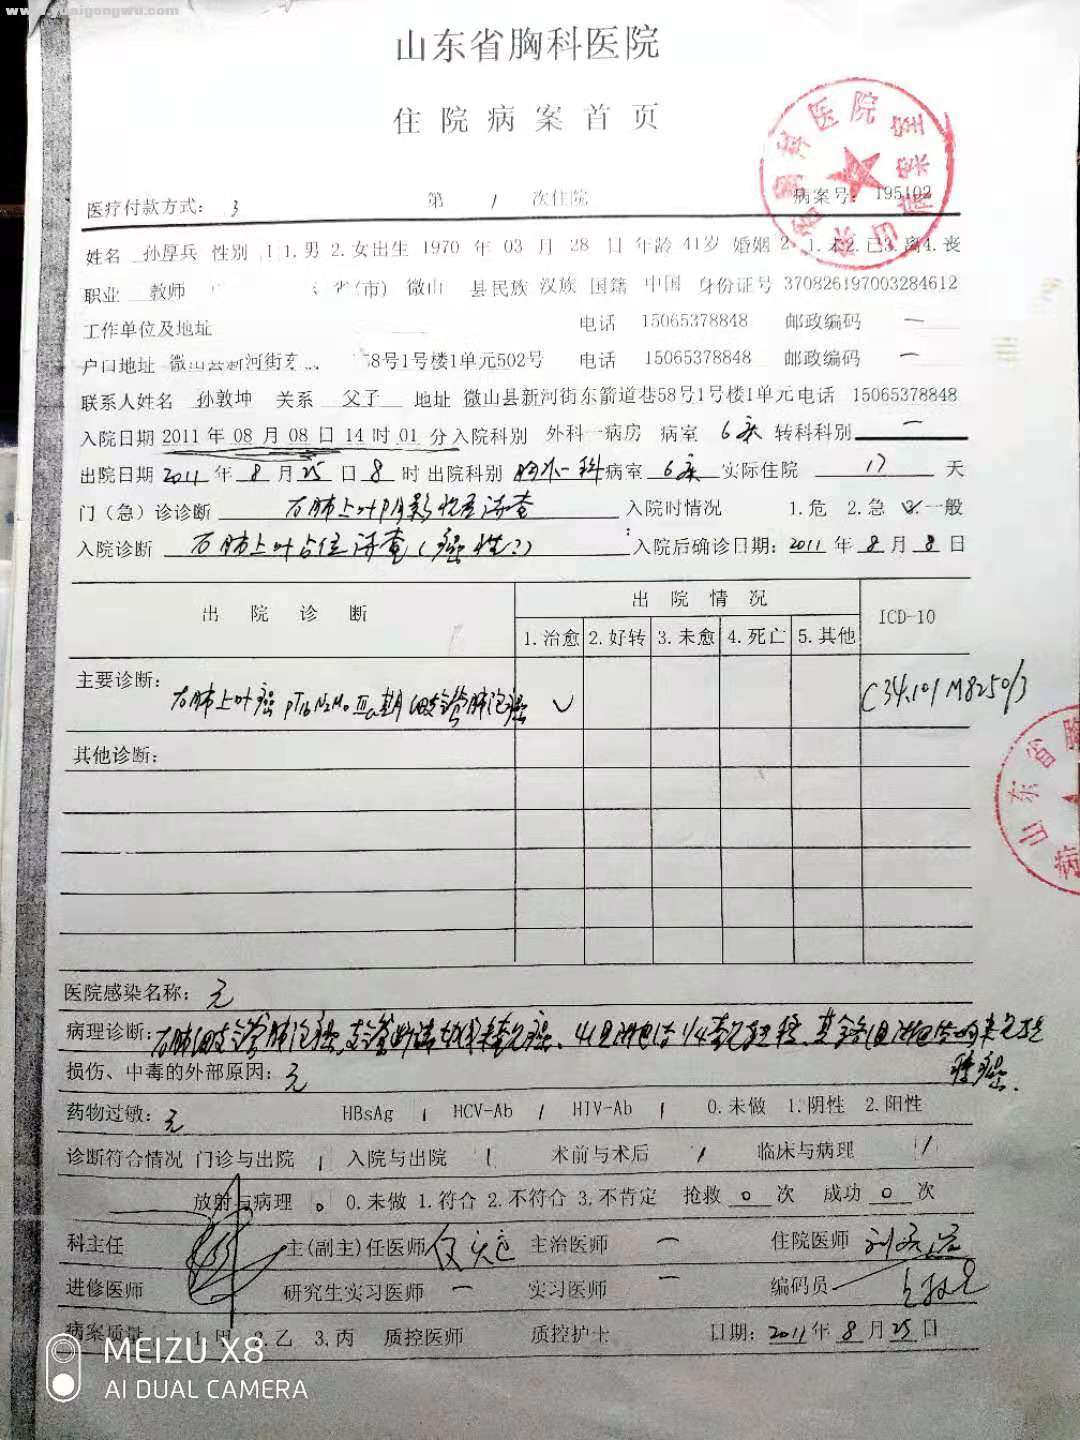 www.yuaigongwu.com
山东省胸科医院
住院病案首页
医疗付款方式： 3 第 1 次住院 病案号： 195102
姓名 孙厚兵 性别 1 1.男 2.女 出生 1970 年 03 月 28 日 年龄 41岁 婚姻 2 1.未 2.已 3.离 4.丧
职业 教师 省(市) 微山 县 民族 汉族 国籍 中国 身份证号 370826197003284612
工作单位及地址 电话 15065378848 邮政编码 一
户口地址 微山县新河街 58号1号楼1单元502号 电话 15065378848 邮政编码 一
联系人姓名 孙敦坤 关系 父子 地址 微山县新河街东箭道巷58号1号楼1单元 电话 15065378848
入院日期 2011 年 08 月 08 日 14 时 01 分 入院科别 外科一病房 病室 6床 转科科别 一
出院日期 2011 年 8 月 25 日 8 时 出院科别 胸外一科 病室 6床 实际住院 17 天
门（急）诊诊断 右肺上叶阴影性质待查 入院时情况 1.危 2.急 3.一般
入院诊断 右肺上叶占位待查（癌性？） 入院后确诊日期： 2011 年 8 月 8 日
出院诊断 出院情况 ICD-10
1.治愈 2.好转 3.未愈 4.死亡 5.其他
主要诊断： 右肺上叶癌 pT1bN2M0 Ⅲa期 细支气管肺泡癌 ✓ C34.101 M8250/3
其他诊断：
医院感染名称： 无
病理诊断： 右肺细支气管肺泡癌，支气管断端
损伤、中毒的外部原因： 无
药物过敏： 无 HBsAg 1 HCV-Ab 1 HIV-Ab 1 0.未做 1.阴性 2.阳性
诊断符合情况 门诊与出院 1 入院与出院 1 术前与术后 1 临床与病理 1
放射与病理 0 0.未做 1.符合 2.不符合 3.不肯定 抢救 0 次 成功 0 次
科主任 主(副主)任医师 主治医师 一 住院医师
进修医师 研究生实习医师 一 实习医师 一 编码员
病案质量 1.甲 2.乙 3.丙 质控医师 质控护士 日期： 2011 年 8 月 25 日
山东省胸
病
MEIZU X8
AI DUAL CAMERA